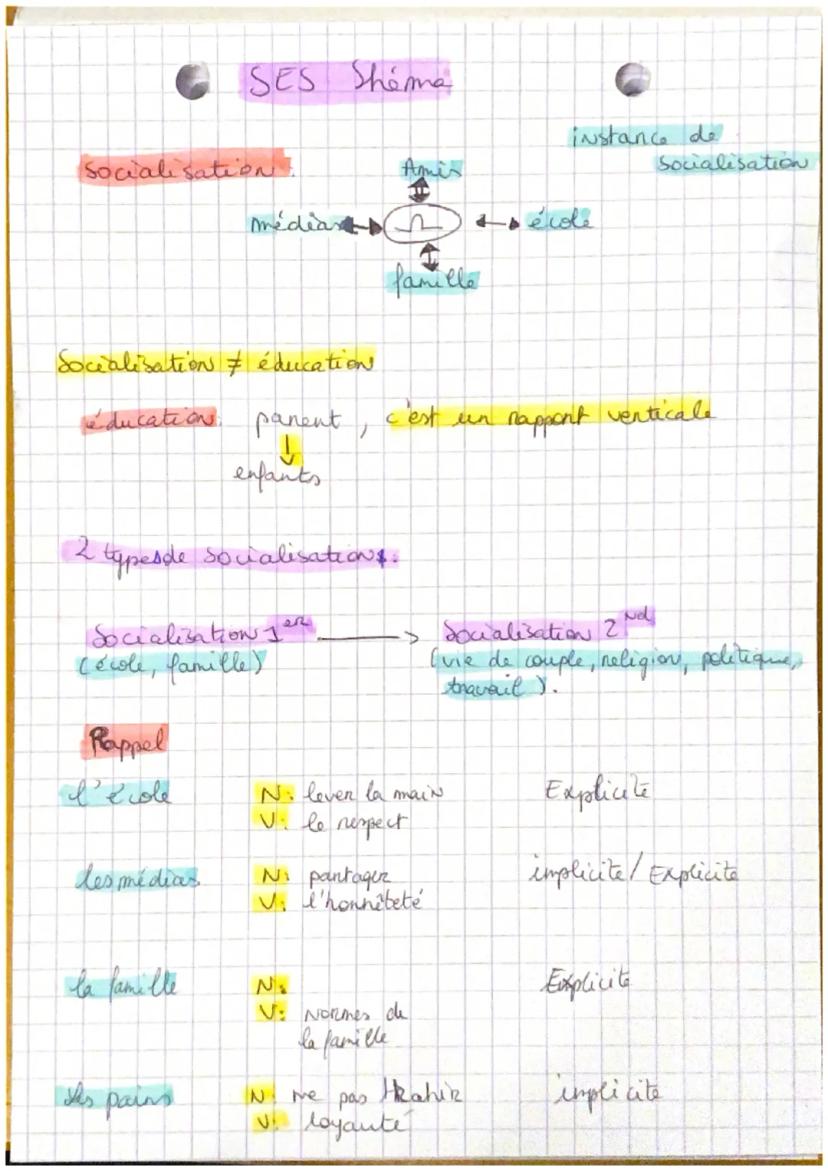 SES Shéma
instance de
socialisation
socialisation.
Amis
médias
école
famille
Socialisation ≠ éducation
éducation: parent, c'est un rapport verticale
enfants
2 types de socialisations:
Socialisation 1er
Socialisation 2nd
(école, famille)
(vie de couple, religion, politique,
travail).
Rappel
l'école N: lever la main Explicite
V: le respect
les médias N: partager implicite/Explicite
V: l'honnêteté
la famille N: Explicite
V: Normes de
la famille
les pairs N: ne pas trahir implicite
V: loyauté